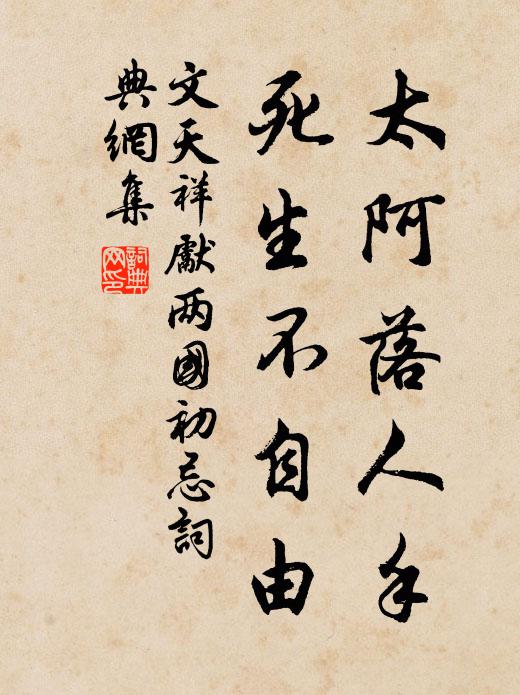 太阿落人手
死生不自由
文天祥獻两國初忌詞
典網集
詞典網印